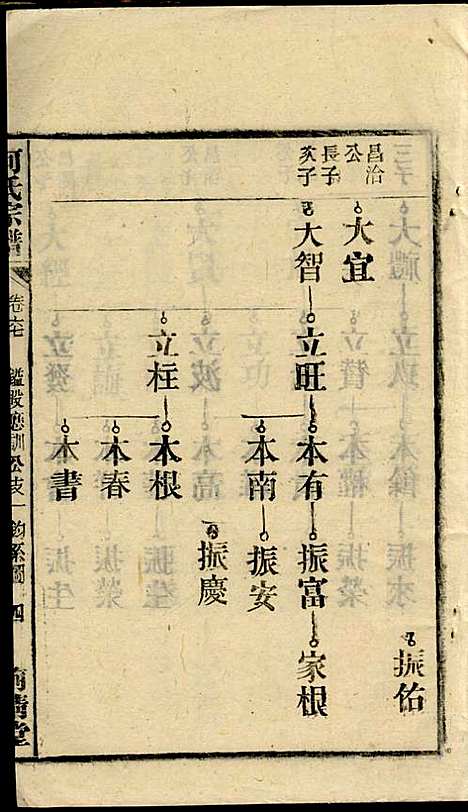 振佑
昌治公長子次子
大宜
大智 立旺 本有 振富 家根
本南 振安
振慶
立柱 本根
本春
本書
何氏宗譜 卷六七 公支 鈞系圖 四